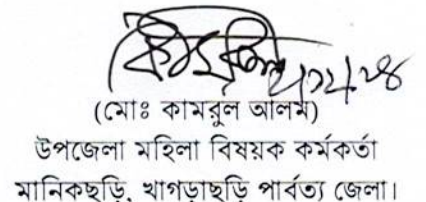 (মোঃ কামরুল আলম)
উপজেলা মহিলা বিষয়ক কর্মকর্তা
মানিকছড়ি, খাগড়াছড়ি পার্বত্য জেলা।